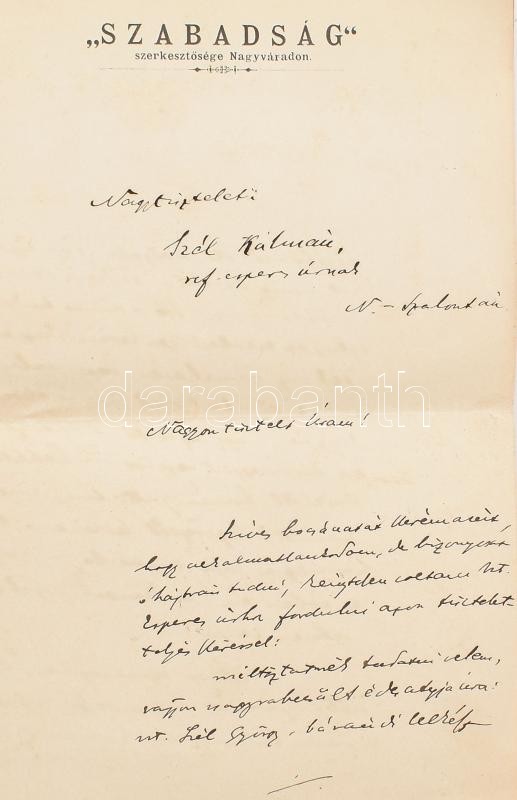 „SZABADSÁG“
szerkesztősége Nagyváradon.
Nagytiszteletü
Szél Kálmán,
ref. esperes úrnak
N.-Szalontán
darabanth
Nagyon tisztelt Uram!
Szives bocsánatát kérem azért,
hogy alkalmatlankodom, de bizonyost
óhajtván tudni, kénytelen voltam Nt.
Esperes úrhoz fordulni azon tisztelet-
teljes kéréssel:
méltóztatnék tudatni velem,
vajjon nagyrabecsült édes atyja úra:
nt. Szél György, bárándi lelkész